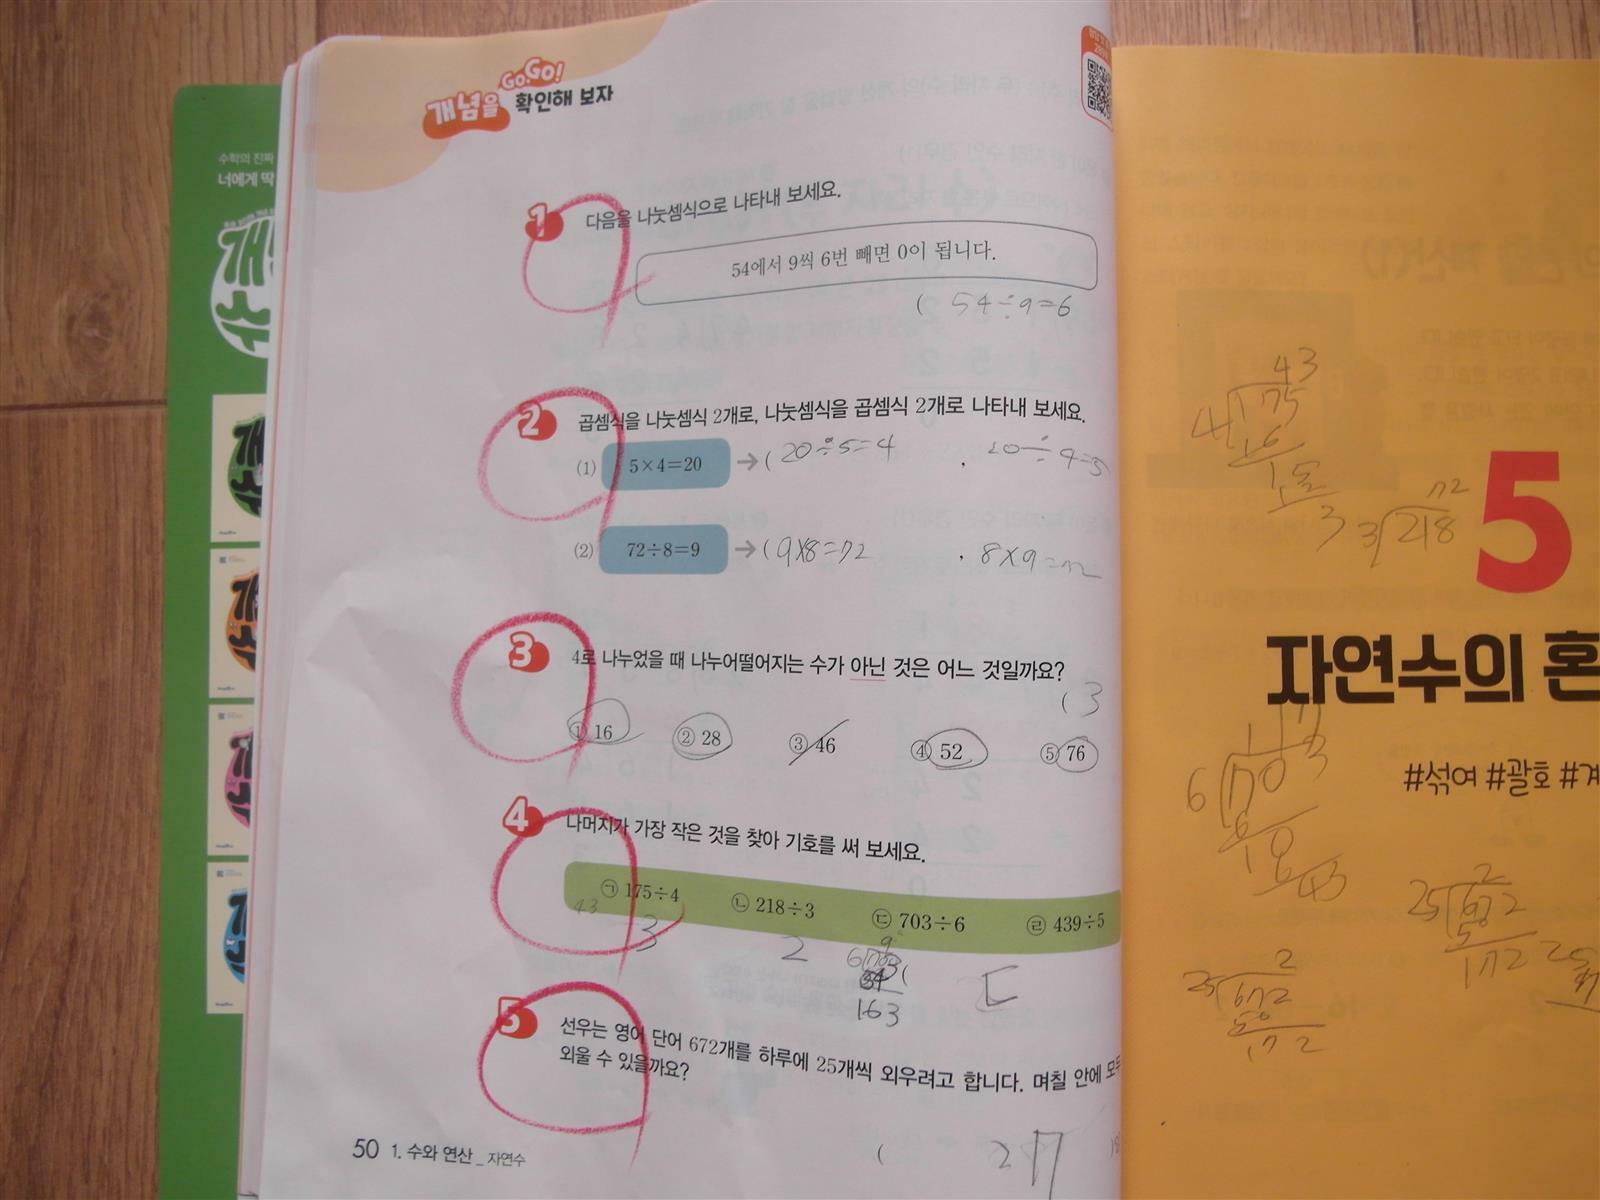 수학의 진짜
너에게 딱
개념을 Go Go!
확인해 보자
1 다음을 나눗셈식으로 나타내 보세요.
54에서 9씩 6번 빼면 0이 됩니다.
( 54÷9=6
2 곱셈식을 나눗셈식 2개로, 나눗셈식을 곱셈식 2개로 나타내 보세요.
(1) 5×4=20 → ( 20÷5=4 , 20÷4=5
(2) 72÷8=9 → ( 9×8=72 , 8×9=72
3 4로 나누었을 때 나누어떨어지는 수가 아닌 것은 어느 것일까요?
( 3
① 16 ② 28 ③ 46 ④ 52 ⑤ 76
4 나머지가 가장 작은 것을 찾아 기호를 써 보세요.
㉠ 175÷4 ㉡ 218÷3 ㉢ 703÷6 ㉣ 439÷5
43
3 2
163
ㄷ
5 선우는 영어 단어 672개를 하루에 25개씩 외우려고 합니다. 며칠 안에 모두
외울 수 있을까요?
( 27
50 1. 수와 연산 _ 자연수
43
4 175
16
3
72
3 218
5
자연수의 혼
6 703
#섞여 #괄호 #계
2
25 672
50
172
2
25 672
5
172